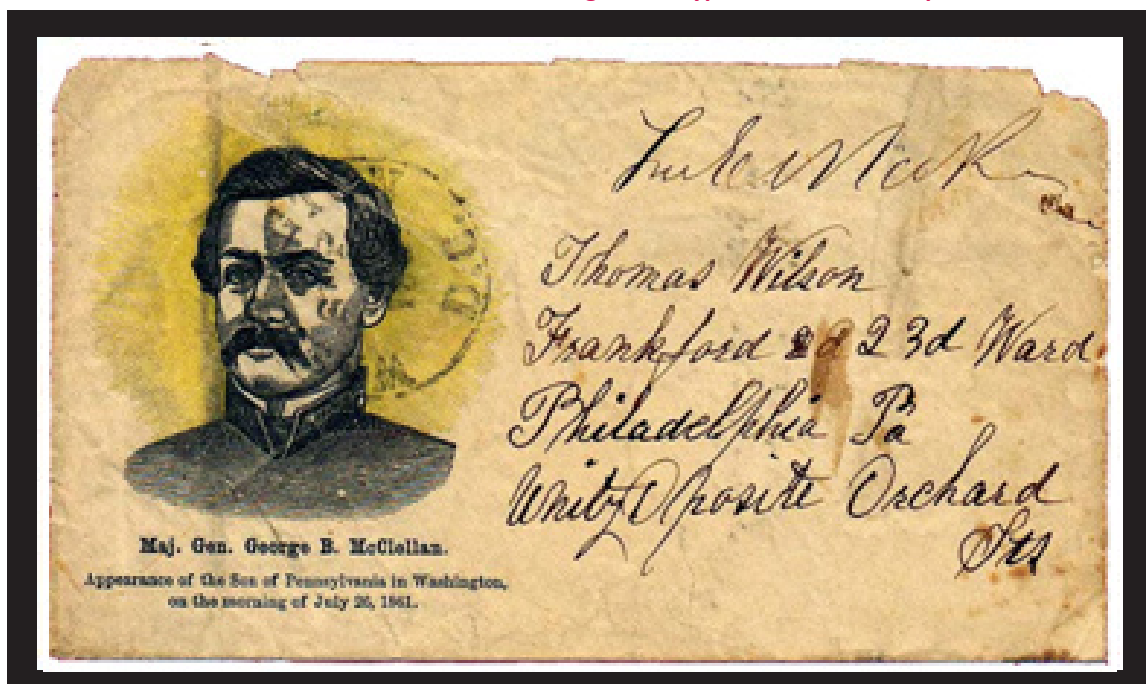 Thomas Wilson
Frankford 23d Ward
Philadelphia Pa
Unity Oposite Orchard
Sts
D.C.
Maj. Gen. George B. McClellan.
Appearance of the Son of Pennsylvania in Washington,
on the morning of July 26, 1861.